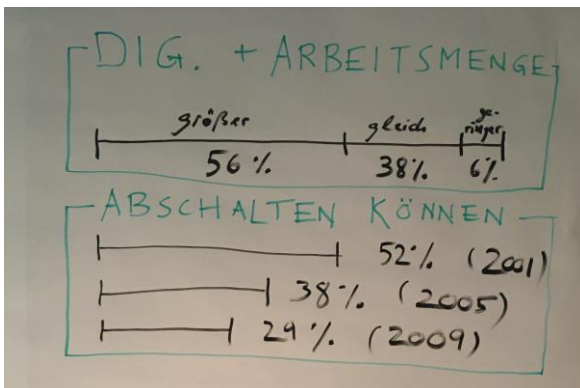 DIG. + ARBEITSMENGE
größer gleich ge-
ringer
56% 38% 6%
ABSCHALTEN KÖNNEN
52% (2001)
38% (2005)
29% (2009)